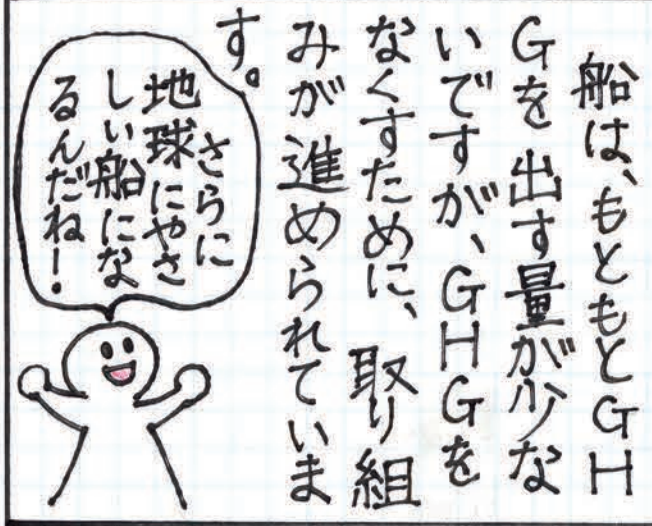 船は、もともとGH
Gを出す量が少な
いですが、GHGを
なくすために、取り組
みが進められていま
す。
さらに
地球にやさ
しい船にな
るんだね!